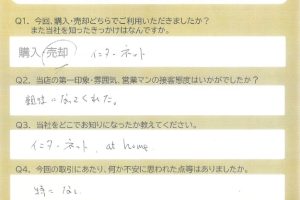 Q1、今回、購入・売却どちらでご利用いただきましたか?
また当社を知ったきっかけはなんですか。
購入・売却 インターネット
Q2、当店の第一印象・雰囲気、営業マンの接客態度はいかがでしたか?
親味になってくれた。
Q3、当社をどこでお知りになったか教えてください。
インターネット、at home
Q4、今回の取引にあたり、何か不安に思われた点等はありましたか。
特になし